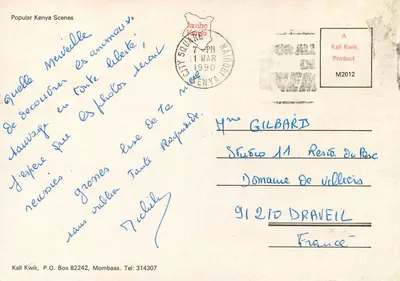 Popular Kenya Scenes
Quelle Merveille
de decouvrir les animaux
sauvage en toute liberté!
J'espère que les photos seront
reussies.
grosses bise de ta nièce
sans oublier Tante Raymonde.
Michèle
Jambo
Kenya
CITY SQUARE NAIROBI
7 - PM
11 MAR
1990
KENYA
A
Kall Kwik
Product
M2012
Mme GILBARD
Studio 11 Resd. du Parc
Domaine de Villiers
91210 DRAVEIL
France
Kall Kwik, P.O. Box 82242, Mombasa. Tel: 314307